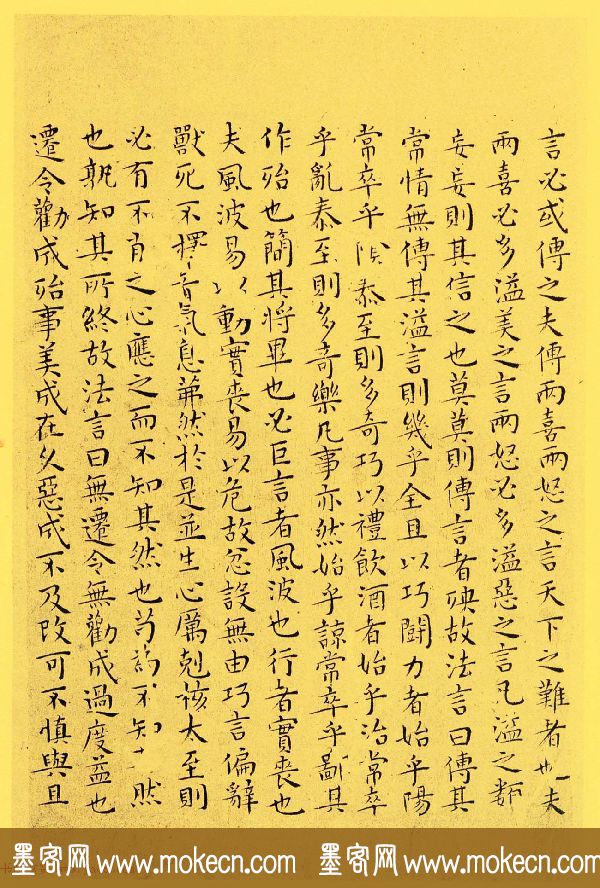 言必或傳之夫傳兩喜兩怒之言天下之難者也夫
兩喜必多溢美之言兩怒必多溢惡之言凡溢之類
妄妄則其信之也莫莫則傳言者殃故法言曰傳其
常情無傳其溢言則幾乎全且以巧鬪力者始乎陽
常卒乎陰泰至則多奇巧以禮飲酒者始乎治常卒
乎亂泰至則多奇樂凡事亦然始乎諒常卒乎鄙其
作殆也簡其將畢也必巨言者風波也行者實喪也
夫風波易以動實喪易以危故忿設無由巧言偏辭
獸死不擇音氣息茀然於是並生心厲剋該太至則
必有不肖之心應之而不知其然也苟為不知然
也孰知其所終故法言曰無遷令無勸成過度益也
遷令勸成殆事美成在久惡成不及改可不慎與且
墨客网 www.mokecn.com 墨客网 www.mokecn.com